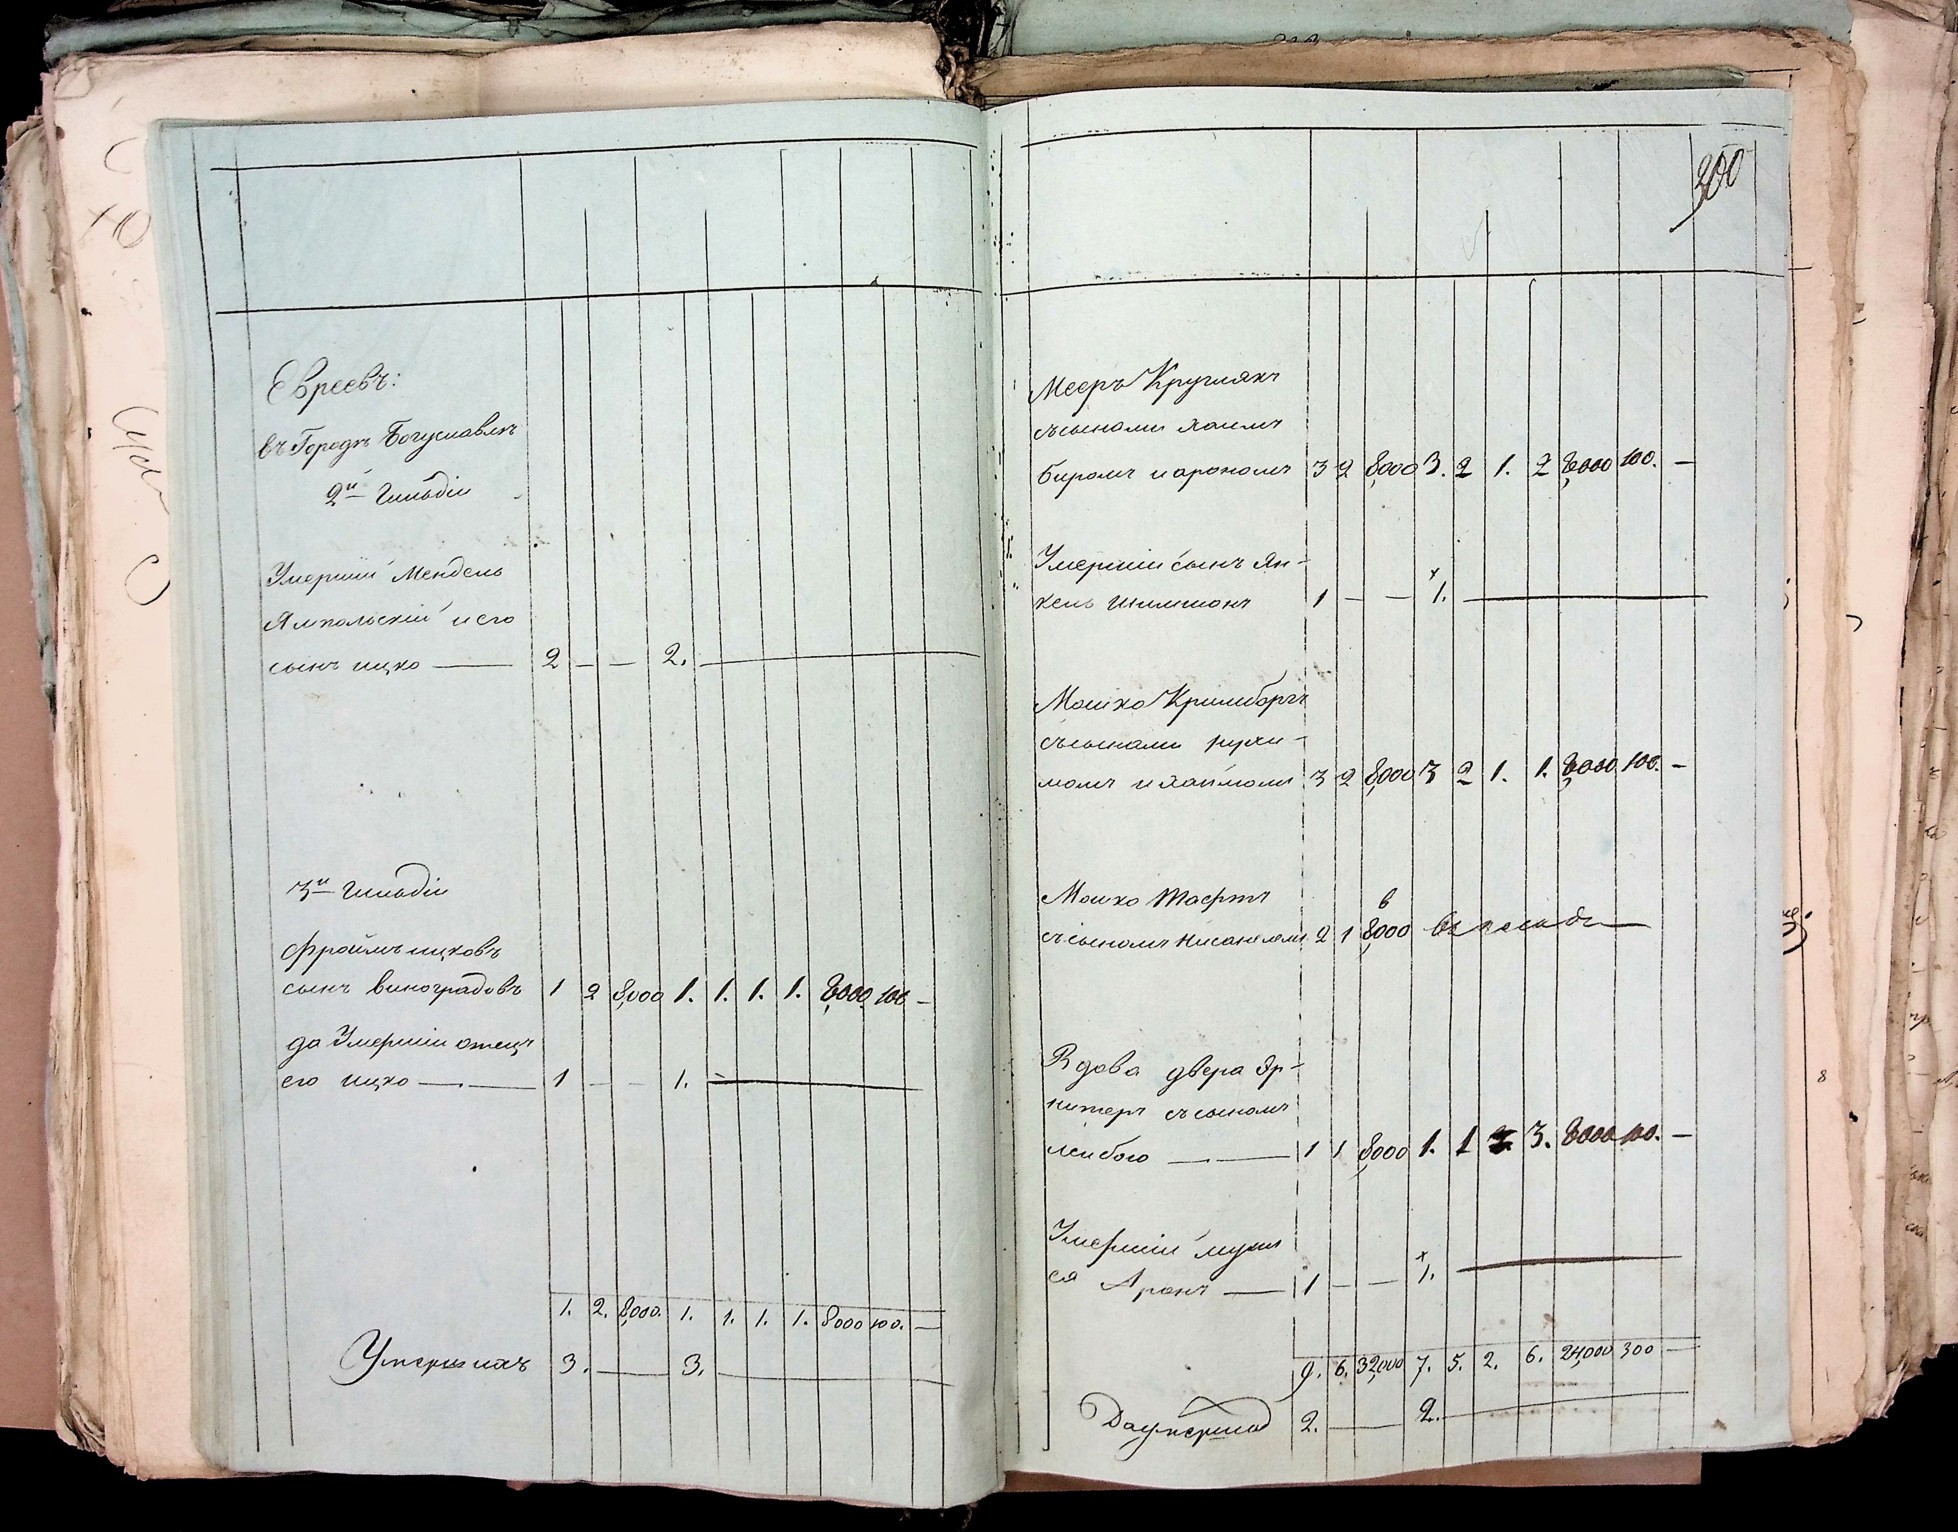 Евреевъ:
въ Городѣ Богуславлѣ
2й Гильдіи
Умершій Мендель
Ямпольскій и его
сынъ ицко — 2 — — 2. —
3й Гильдіи
Фроимъ ицковъ
сынъ виноградовъ 1 2 8,000 1. 1. 1. 1. 8,000 100 —
да Умершій отецъ
его ицко — 1 — — 1. —
1. 2. 8,000. 1. 1. 1. 1. 8000 100. —
Умершихъ 3. — 3. —
200
Мееръ Круглякъ
съ сынами хаимъ
биромъ и арономъ 3 2 8,000 3. 2 1. 2 8,000 100. —
Умершій сынъ Ян-
кель шимшонъ 1 — — 1. —
Мошко
съ сынами нухи-
момъ и хаимомъ 3 2 8,000 3 2 1. 1. 8,000. 100. —
Мошко
съ сыномъ 2 1 8,000
Вдова двера
съ сыномъ
лейбою — 1 1 8,000 1. 1 3. 8000 100. —
Умершій мужъ
ея Аронъ — 1 — — 1. —
9. 6. 32,000 7. 5. 2. 6. 24,000 300 —
Да умерших 2. — 2. —